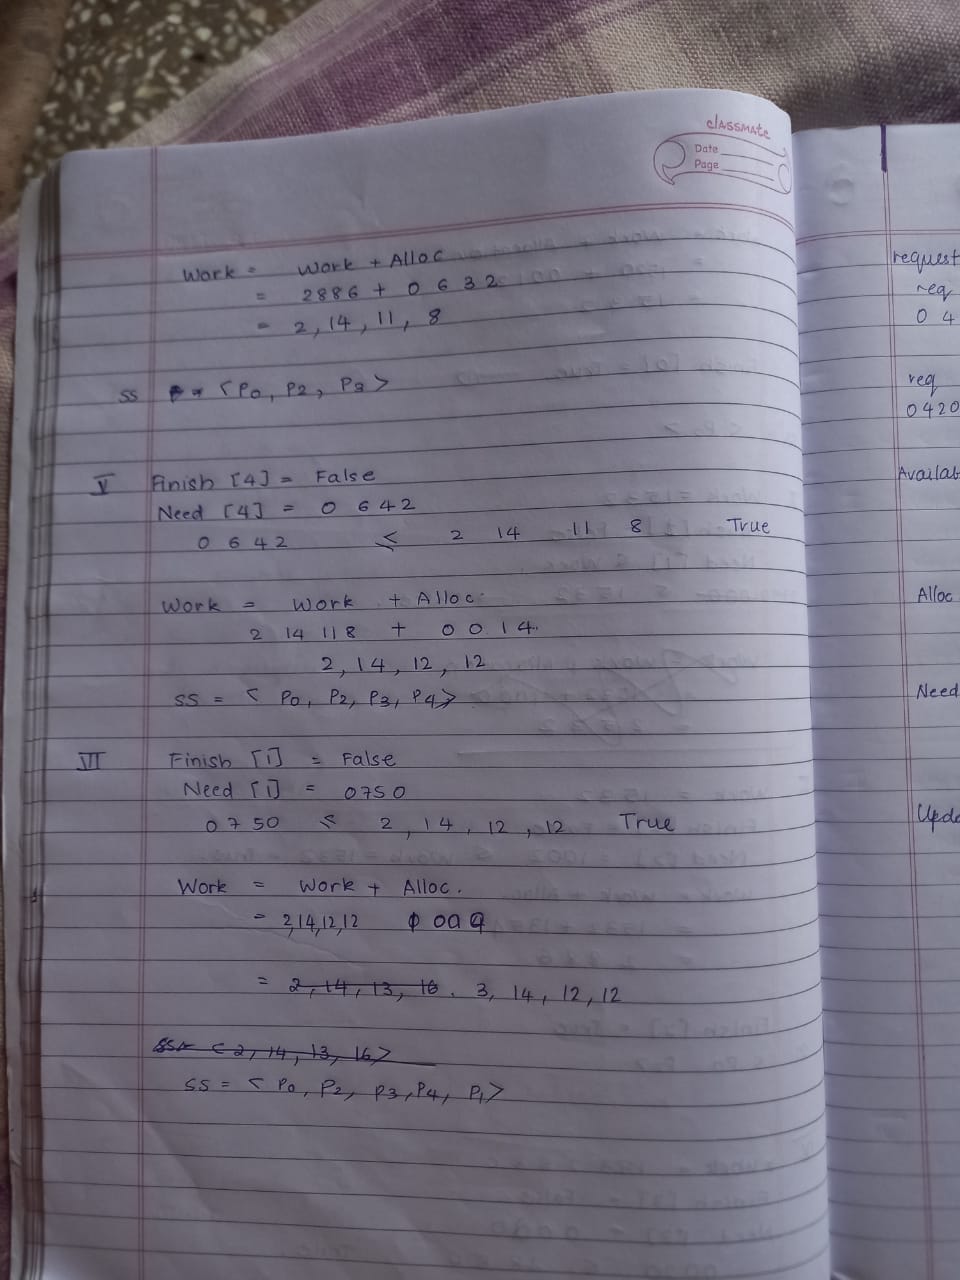 classmate
Date
Page
Work = Work + Alloc
= 2886 + 0 6 3 2
= 2, 14, 11, 8
SS < P0, P2, P3 >
V Finish [4] = False
Need [4] = 0 6 4 2
0 6 4 2 ≤ 2 14 11 8 True
Work = Work + Alloc.
2 14 11 8 + 0 0 1 4.
2, 14, 12, 12
SS = < P0, P2, P3, P4 >
VI Finish [1] = False
Need [1] = 0750
0 7 50 ≤ 2, 14, 12, 12 True
Work = Work + Alloc.
= 2,14,12,12
= 2, 14, 13, 16. 3, 14, 12, 12
SS = < 2, 14, 13, 16 >
SS = < P0, P2, P3, P4, P1 >
request
req
0 4
req
0420
Availab
Alloc
Need
Upda